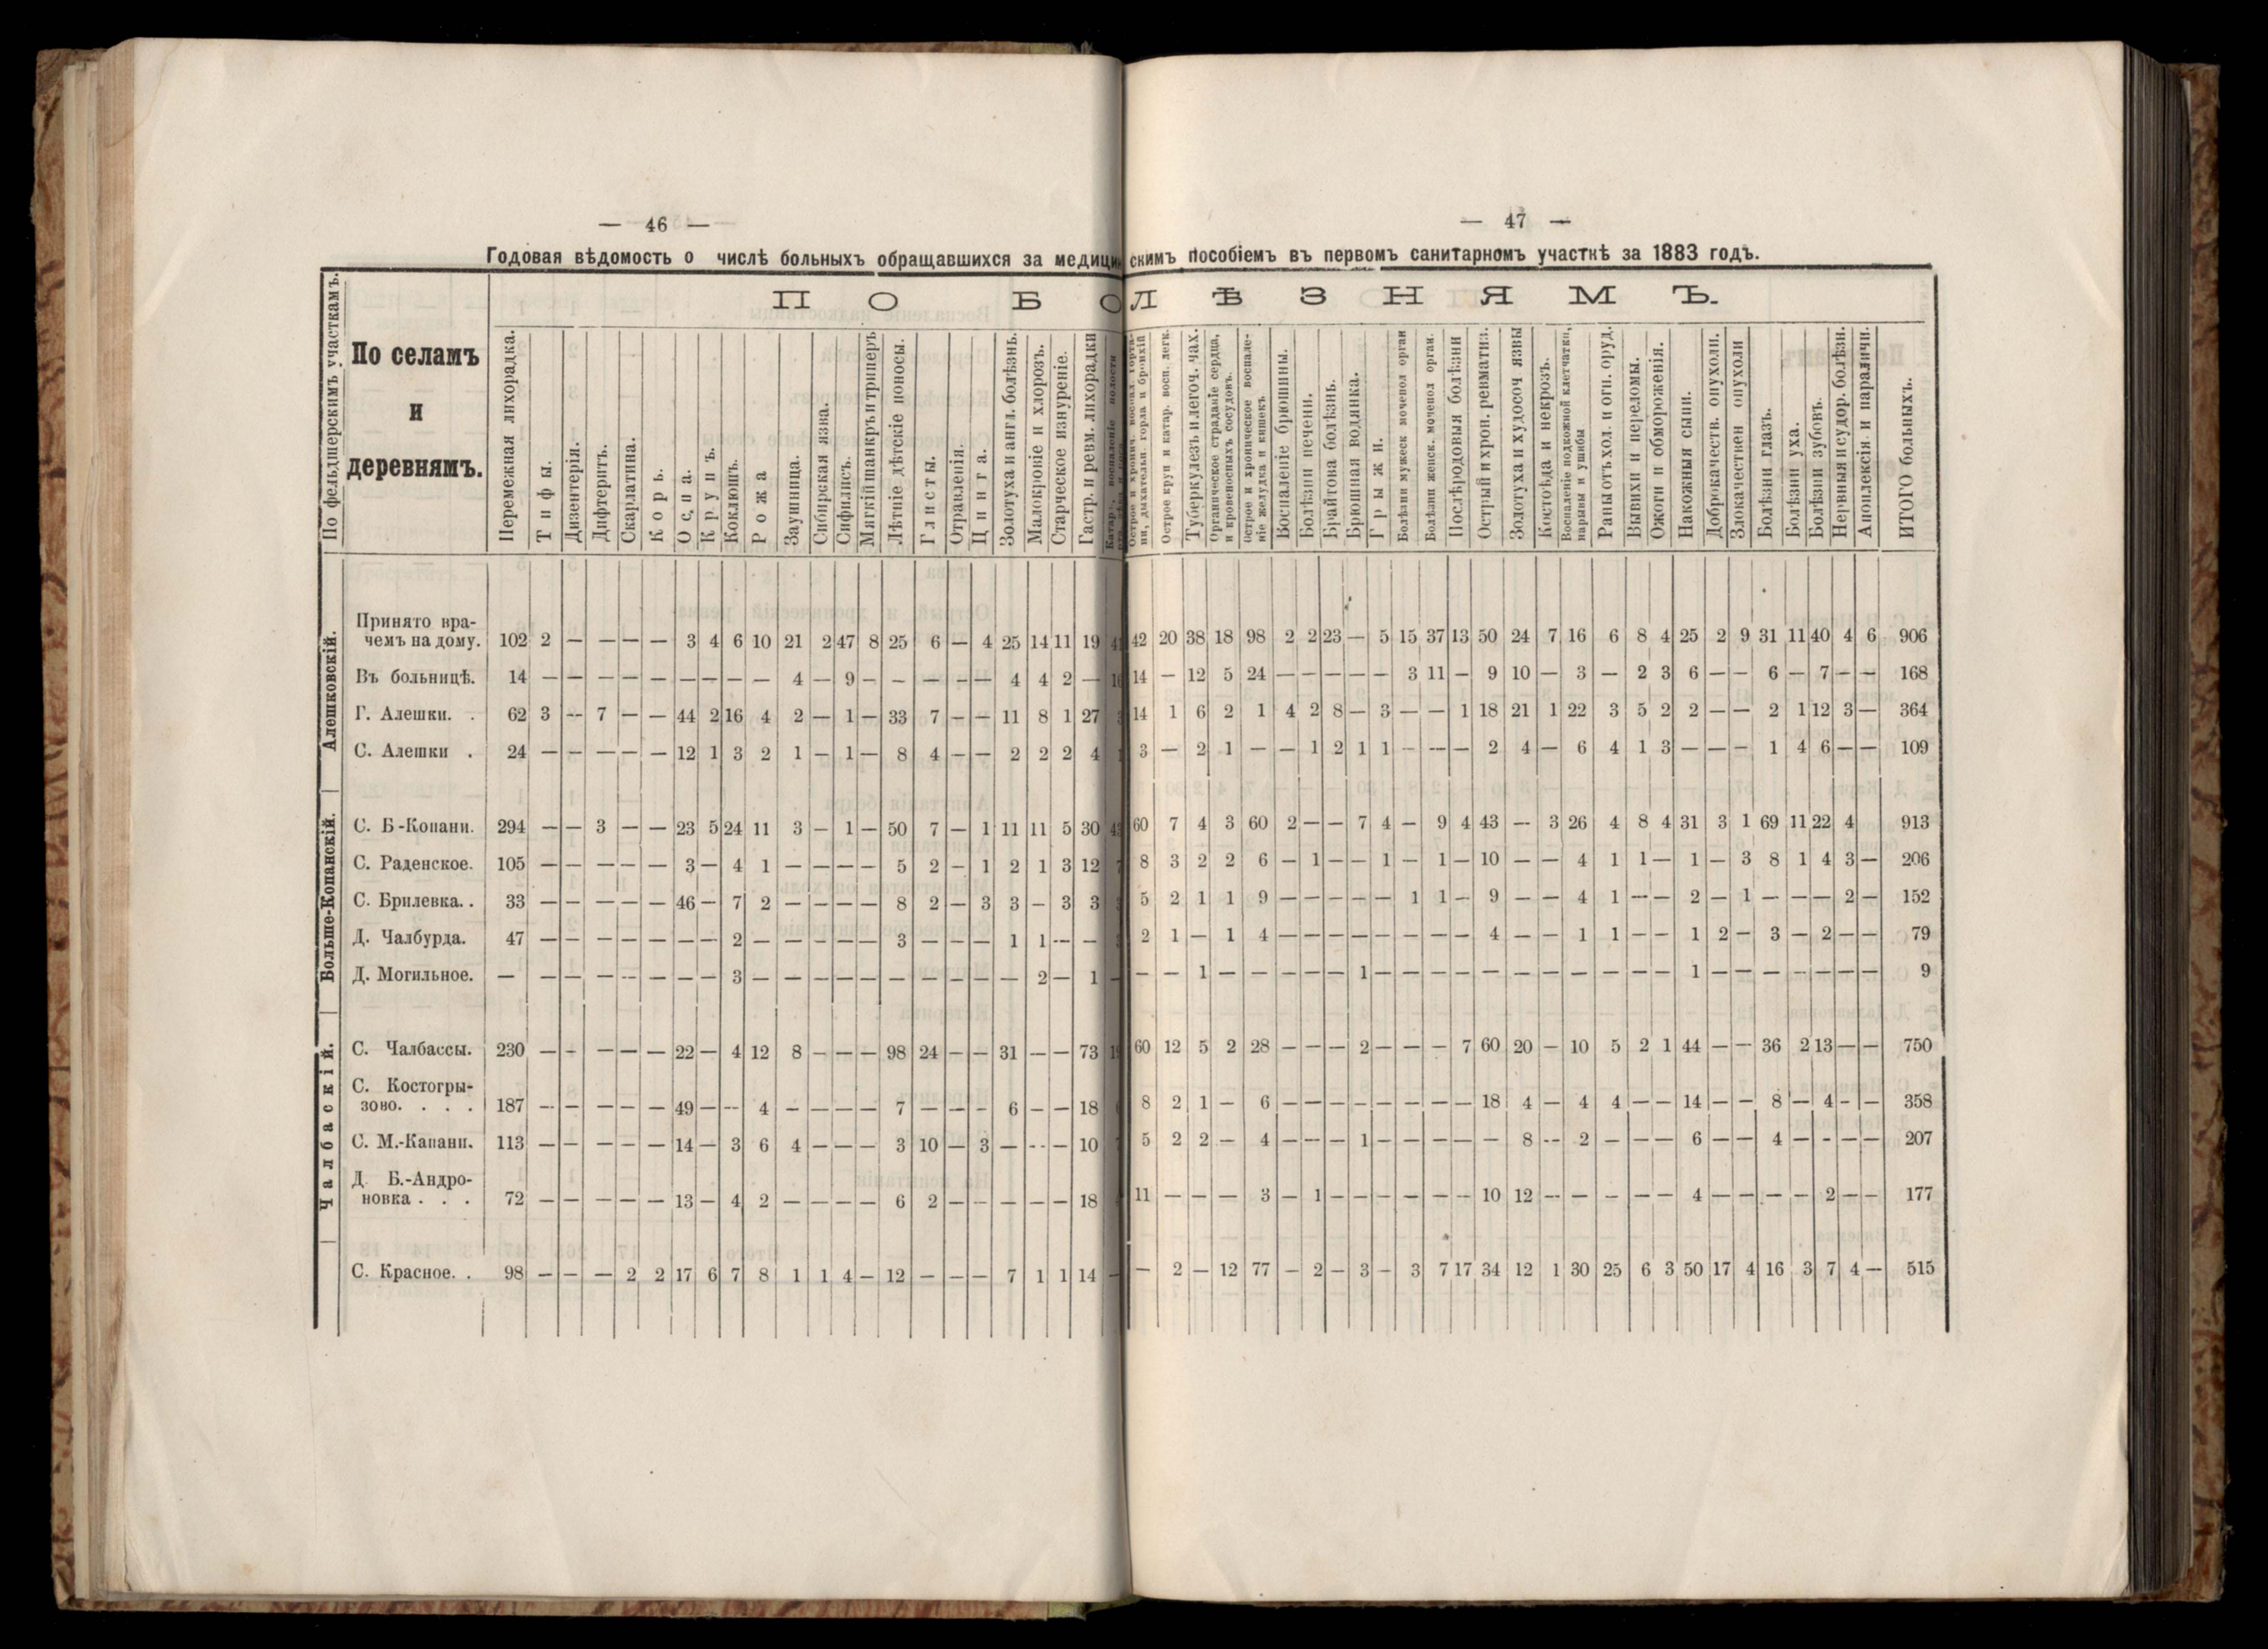 — 46 —
— 47 —
Годовая вѣдомость о числѣ больныхъ обращавшихся за медицинскимъ пособіемъ въ первомъ санитарномъ участкѣ за 1883 годъ.
По фельдшерскимъ участкамъ.
По селамъ
и
деревнямъ.
ПО БОЛѢЗНЯМЪ.
Перемежная лихорадка.
Тифы.
Дизентерія.
Дифтеритъ.
Скарлатина.
Корь.
Оспа.
Крупъ.
Коклюшъ.
Рожа
Заушница.
Сибирская язва.
Сифилисъ.
Мягкій шанкръ и трипперъ
Лѣтніе дѣтскіе поносы.
Глисты.
Отравленія.
Цинга.
Золотуха и англ. болѣзнь.
Малокровіе и хлорозъ.
Старческое изнуреніе.
Гастр. и ревм. лихорадки
Катар. воспаленіе полости
Острое и хронич. воспал. горта-
ни, дыхательн. горла и бронхій
Острое круп и катар. восп. легк.
Туберкулезъ и легоч. чах.
Органическое страданіе сердца,
и кровеносныхъ сосудовъ.
Острое и хроническое воспале-
ніе желудка и кишекъ
Воспаленіе брюшины.
Болѣзни печени.
Брайтова болѣзнь.
Брюшная водянка.
Грыжи.
Болѣзни мужеск мочепол орган
Болѣзни женск. мочепол орган.
Послѣродовыя болѣзни
Острый и хрон. ревматиз.
Золотуха и худосоч язвы
Костоѣда и некрозъ.
Воспаленіе подкожной клетчатки,
нарывы и ушибы
Раны отъ хол. и огн. оруд.
Вывихи и переломы.
Ожоги и обмороженія.
Накожныя сыпи.
Доброкачеств. опухоли.
Злокачествен опухоли
Болѣзни глазъ.
Болѣзни уха.
Болѣзни зубовъ.
Нервныя и судор. болѣзн.
Апоплексія и параличи.
ИТОГО больныхъ.
Алешковскій.
Принято вра-
чемъ на дому. 102 2 — — — — 3 4 6 10 21 2 47 8 25 6 — 4 25 14 11 19 41 42 20 38 18 98 2 2 23 — 5 15 37 13 50 24 7 16 6 8 4 25 2 9 31 11 40 4 6 906
Въ больницѣ. 14 — — — — — — — — — 4 — 9 — — — — — 4 4 2 — 16 14 — 12 5 24 — — — — — 3 11 — 9 10 — 3 — 2 3 6 — — 6 — 7 — — 168
Г. Алешки. . 62 3 — 7 — — 44 2 16 4 2 — 1 — 33 7 — — 11 8 1 27 3 14 1 6 2 1 4 2 8 — 3 — — 1 18 21 1 22 3 5 2 2 — — 2 1 12 3 — 364
С. Алешки . 24 — — — — — 12 1 3 2 1 — 1 — 8 4 — — 2 2 2 4 1 3 — 2 1 — — 1 2 1 1 — — — 2 4 — 6 4 1 3 — — — 1 4 6 — — 109
Больше-Копанскій.
С. Б-Копани. 294 — — 3 — — 23 5 24 11 3 — 1 — 50 7 — 1 11 11 5 30 43 60 7 4 3 60 2 — — 7 4 — 9 4 43 — 3 26 4 8 4 31 3 1 69 11 22 4 913
С. Раденское. 105 — — — — — 3 — 4 1 — — — — 5 2 — 1 2 1 3 12 7 8 3 2 2 6 — 1 — — 1 — 1 — 10 — — 4 1 1 — 1 — 3 8 1 4 3 — 206
С. Брилевка. . 33 — — — — — 46 — 7 2 — — — — 8 2 — 3 3 — 3 3 3 5 2 1 1 9 — — — — — 1 1 — 9 — — 4 1 — — 2 — 1 — — — 2 — 152
Д. Чалбурда. 47 — — — — — — — 2 — — — — — 3 — — — 1 1 — — 2 1 — 1 4 — — — — — — — — 4 — — 1 1 — — 1 2 — 3 — 2 — — 79
Д. Могильное. — — — — — — — — 3 — — — — — — — — — — 2 — 1 — — — 1 — — — — — 1 — — — — — — — — — — — 1 — — — — — — — 9
Чалбаскій.
С. Чалбассы. 230 — — — — — 22 — 4 12 8 — — — 98 24 — — 31 — — 73 19 60 12 5 2 28 — — — 2 — — — 7 60 20 — 10 5 2 1 44 — — 36 2 13 — — 750
С. Костогры-
зово. . . . 187 — — — — — 49 — — 4 — — — — 7 — — — 6 — — 18 8 2 1 — 6 — — — — — — — — 18 4 — 4 4 — — 14 — — 8 — 4 — — 358
С. М.-Капани. 113 — — — — — 14 — 3 6 4 — — — 3 10 — 3 — — — 10 7 5 2 2 — 4 — — — 1 — — — — — 8 — 2 — — — 6 — — 4 — — — — 207
Д. Б.-Андро-
новка . . . 72 — — — — — 13 — 4 2 — — — — 6 2 — — — — — 18 11 — — — 3 — 1 — — — — — — 10 12 — — — — — 4 — — — — 2 — — 177
С. Красное. . 98 — — — 2 2 17 6 7 8 1 1 4 — 12 — — — 7 1 1 14 — — 2 — 12 77 — 2 — 3 — 3 7 17 34 12 1 30 25 6 3 50 17 4 16 3 7 4 — 515